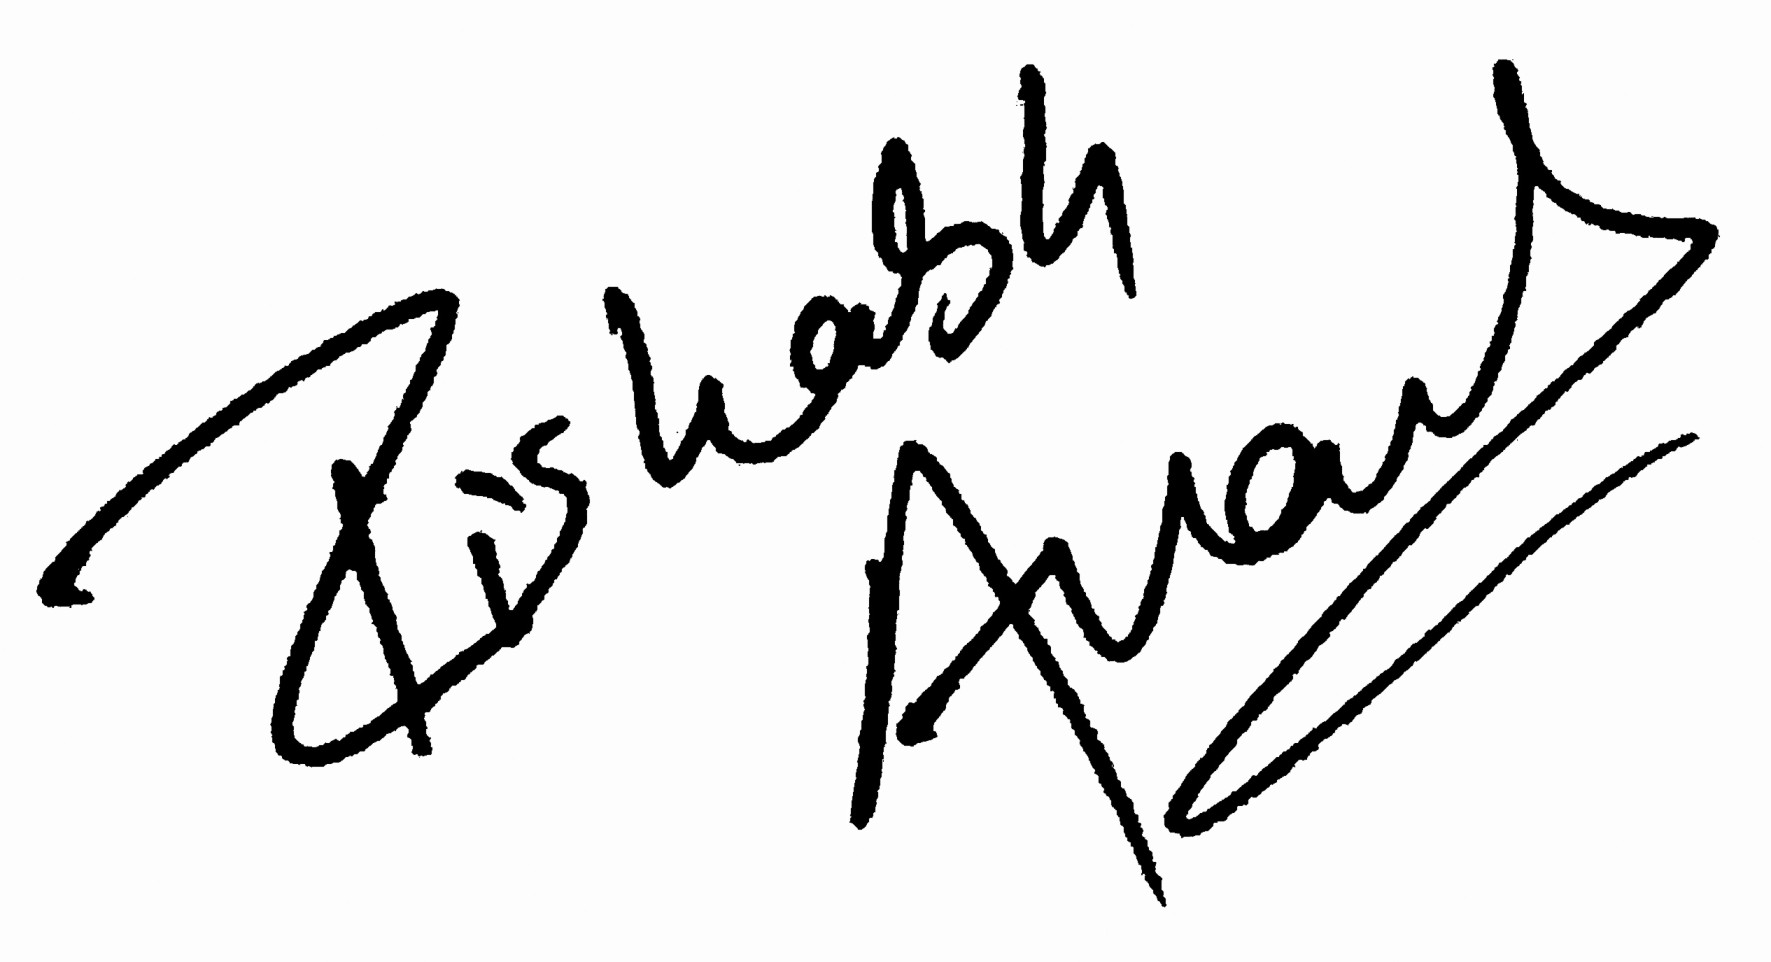 Rishabh
Anand